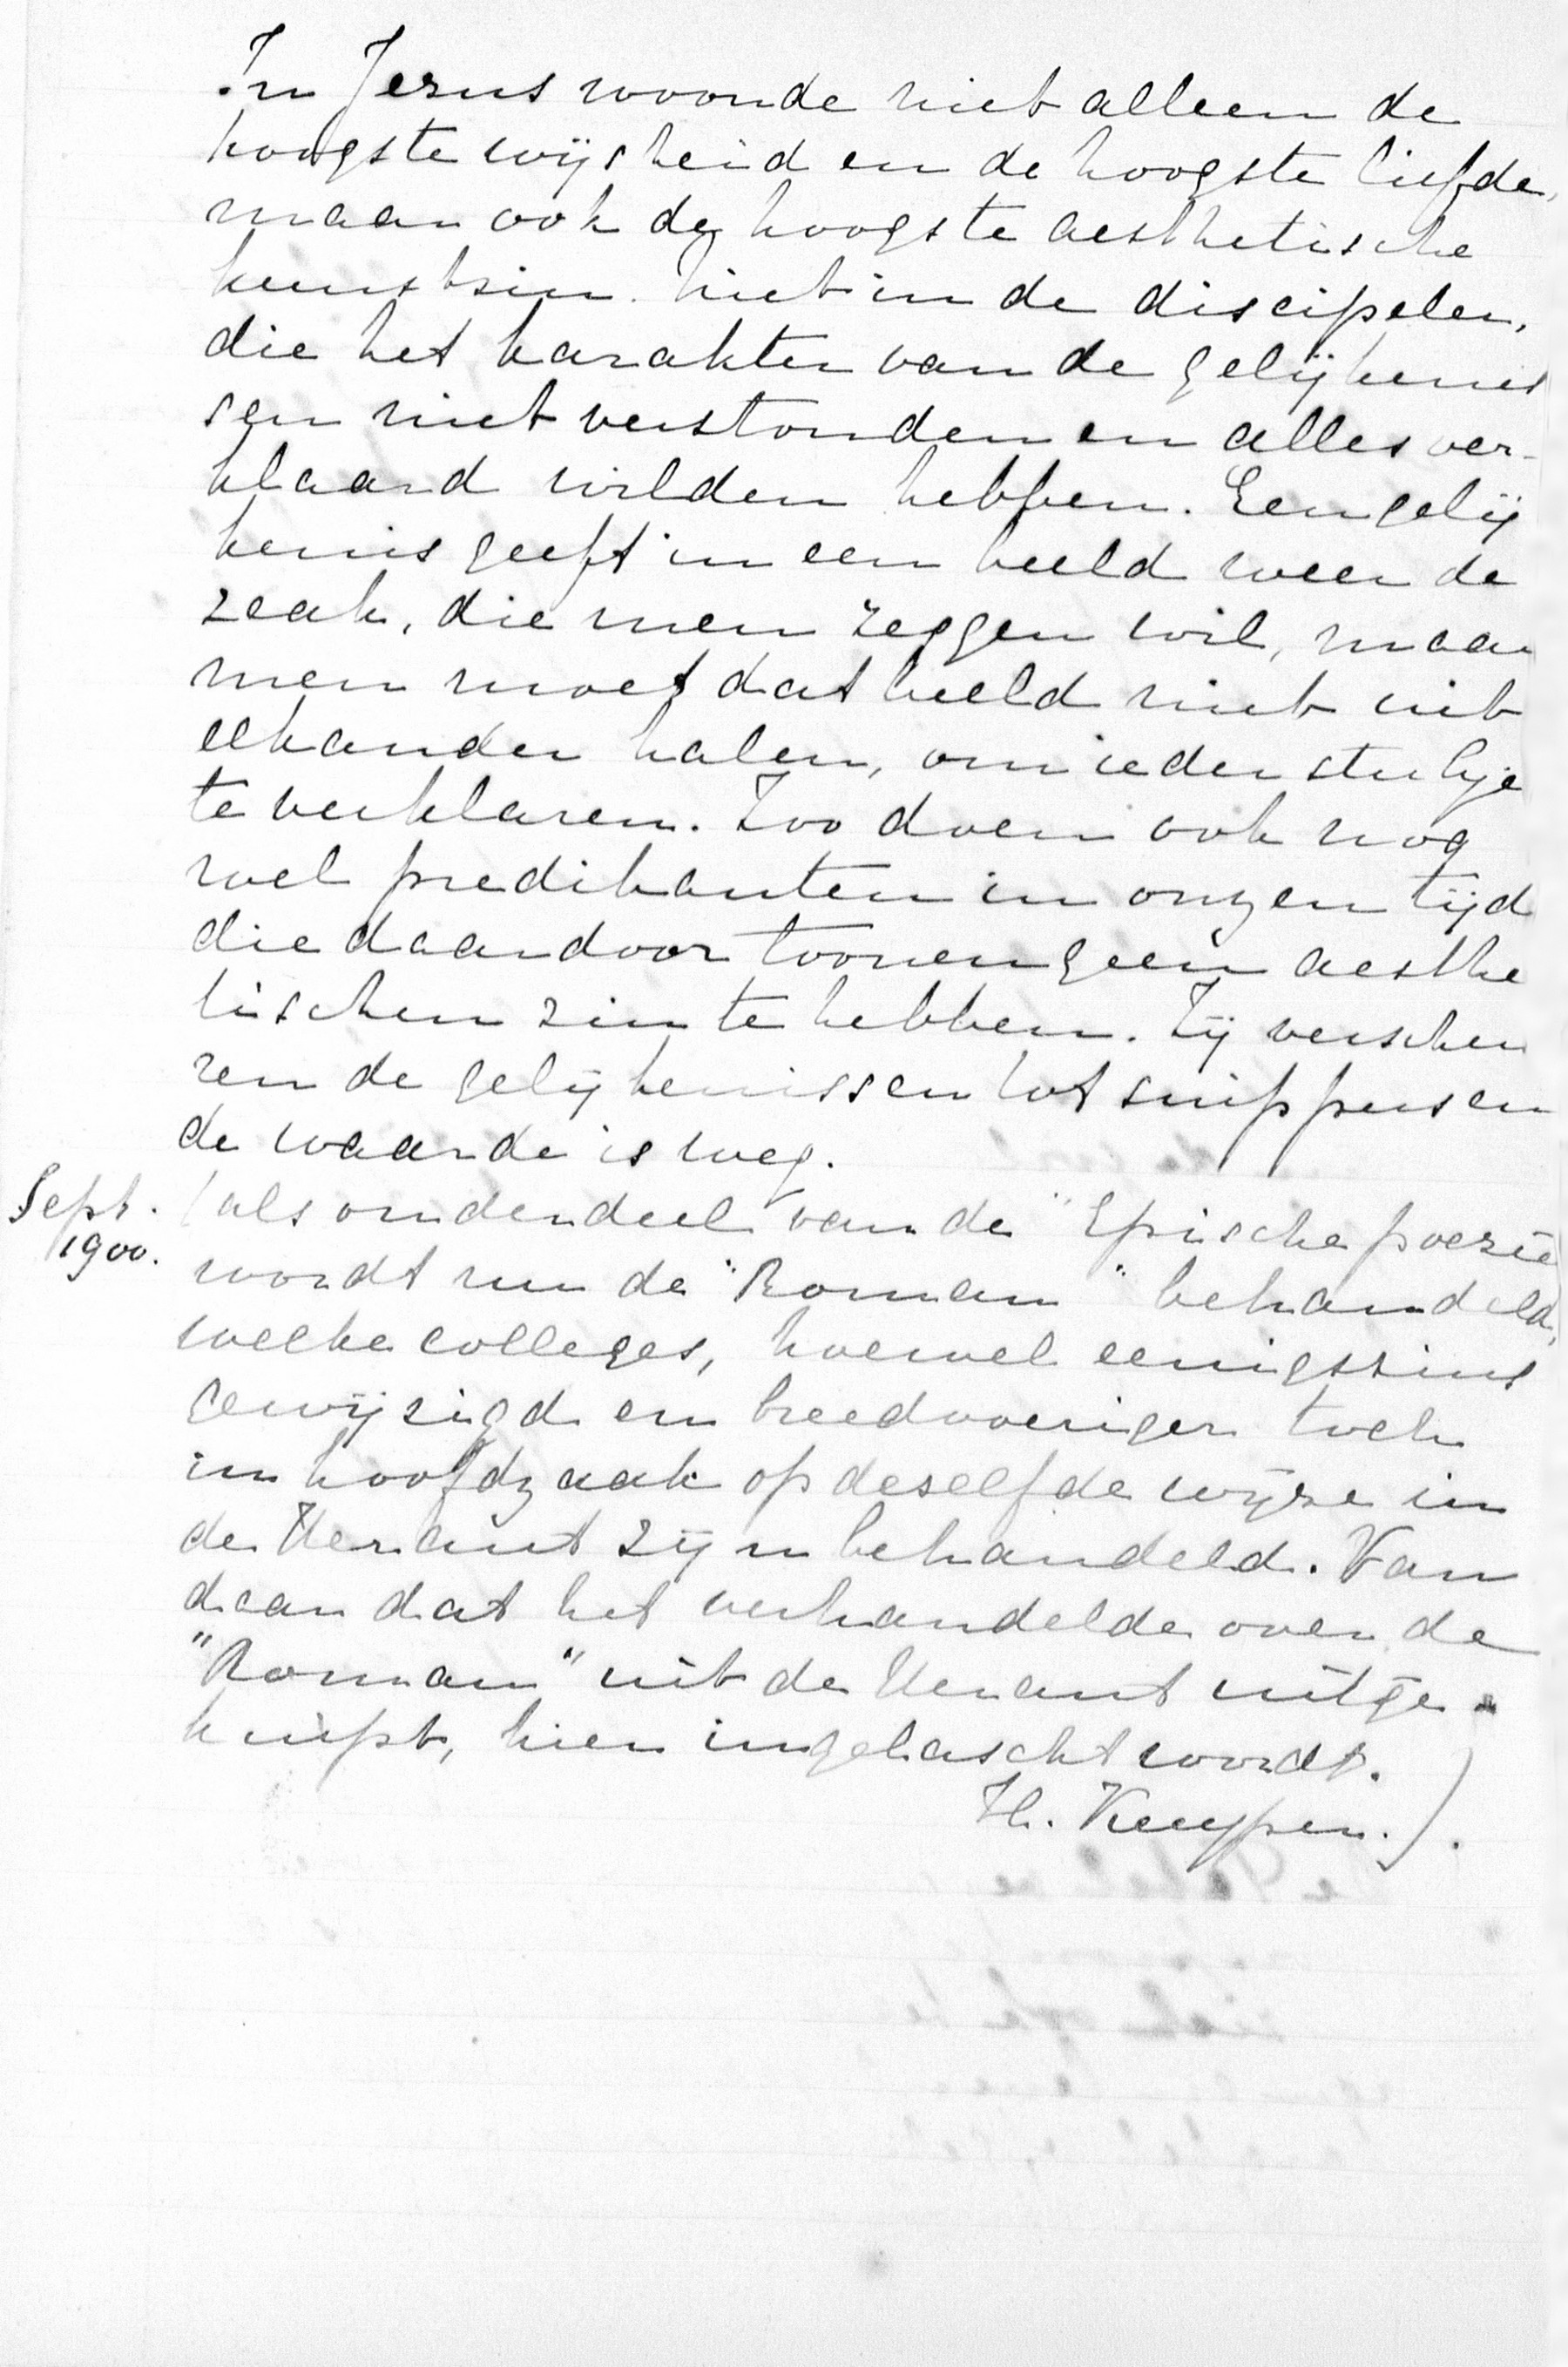 In Jezus woonde niet alleen de
hoogste wijsheid en de hoogste liefde,
maar ook de hoogste aesthetische
kunstzin. Niet in de discipelen,
die het karakter van de gelijkenis
sen niet verstonden en alles ver-
klaard wilden hebben. Een gelij
kenis geeft in een beeld weer de
zaak, die men zeggen wil, maar
men moet dat beeld niet uit
elkander halen, om ieder stukje
te verklaren. Zoo doen ook nog
wel predikanten in onzen tijd
die daardoor toonen geen aesthe
tischen zin te hebben. Zij verscheu
ren de gelijkenissen tot snippers en
de waarde is weg.
Sept.
1900.
(als onderdeel van de "Epische poezie
wordt nu de "Roman" behandeld,
welke colleges, hoewel eenigszins
gewijzigd en breedvoeriger toch
in hoofdzaak op deselfde wijze in
de Heraut zijn behandeld. Van
daar dat het verhandelde over de
"Roman" uit de Heraut uitge
knipt, hier ingelascht wordt.
H. Kuyper.).